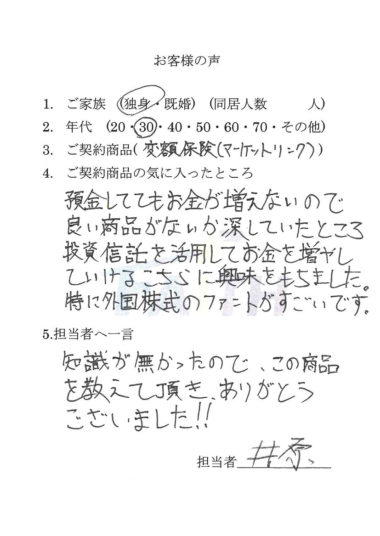 お客様の声
1. ご家族 (独身・既婚) (同居人数 人)
2. 年代 (20・30・40・50・60・70・その他)
3. ご契約商品(変額保険(マーケットリンク))
4. ご契約商品の気に入ったところ
預金しててもお金が増えないので
良い商品がないか深していたところ
投資信託を活用してお金を増やし
ていけるこちらに興味をもちました。
特に外国株式のファントがすごいです。
5.担当者へ一言
知識が無かったので、この商品
を教えて頂き、ありがとう
ございました!!
担当者 井原